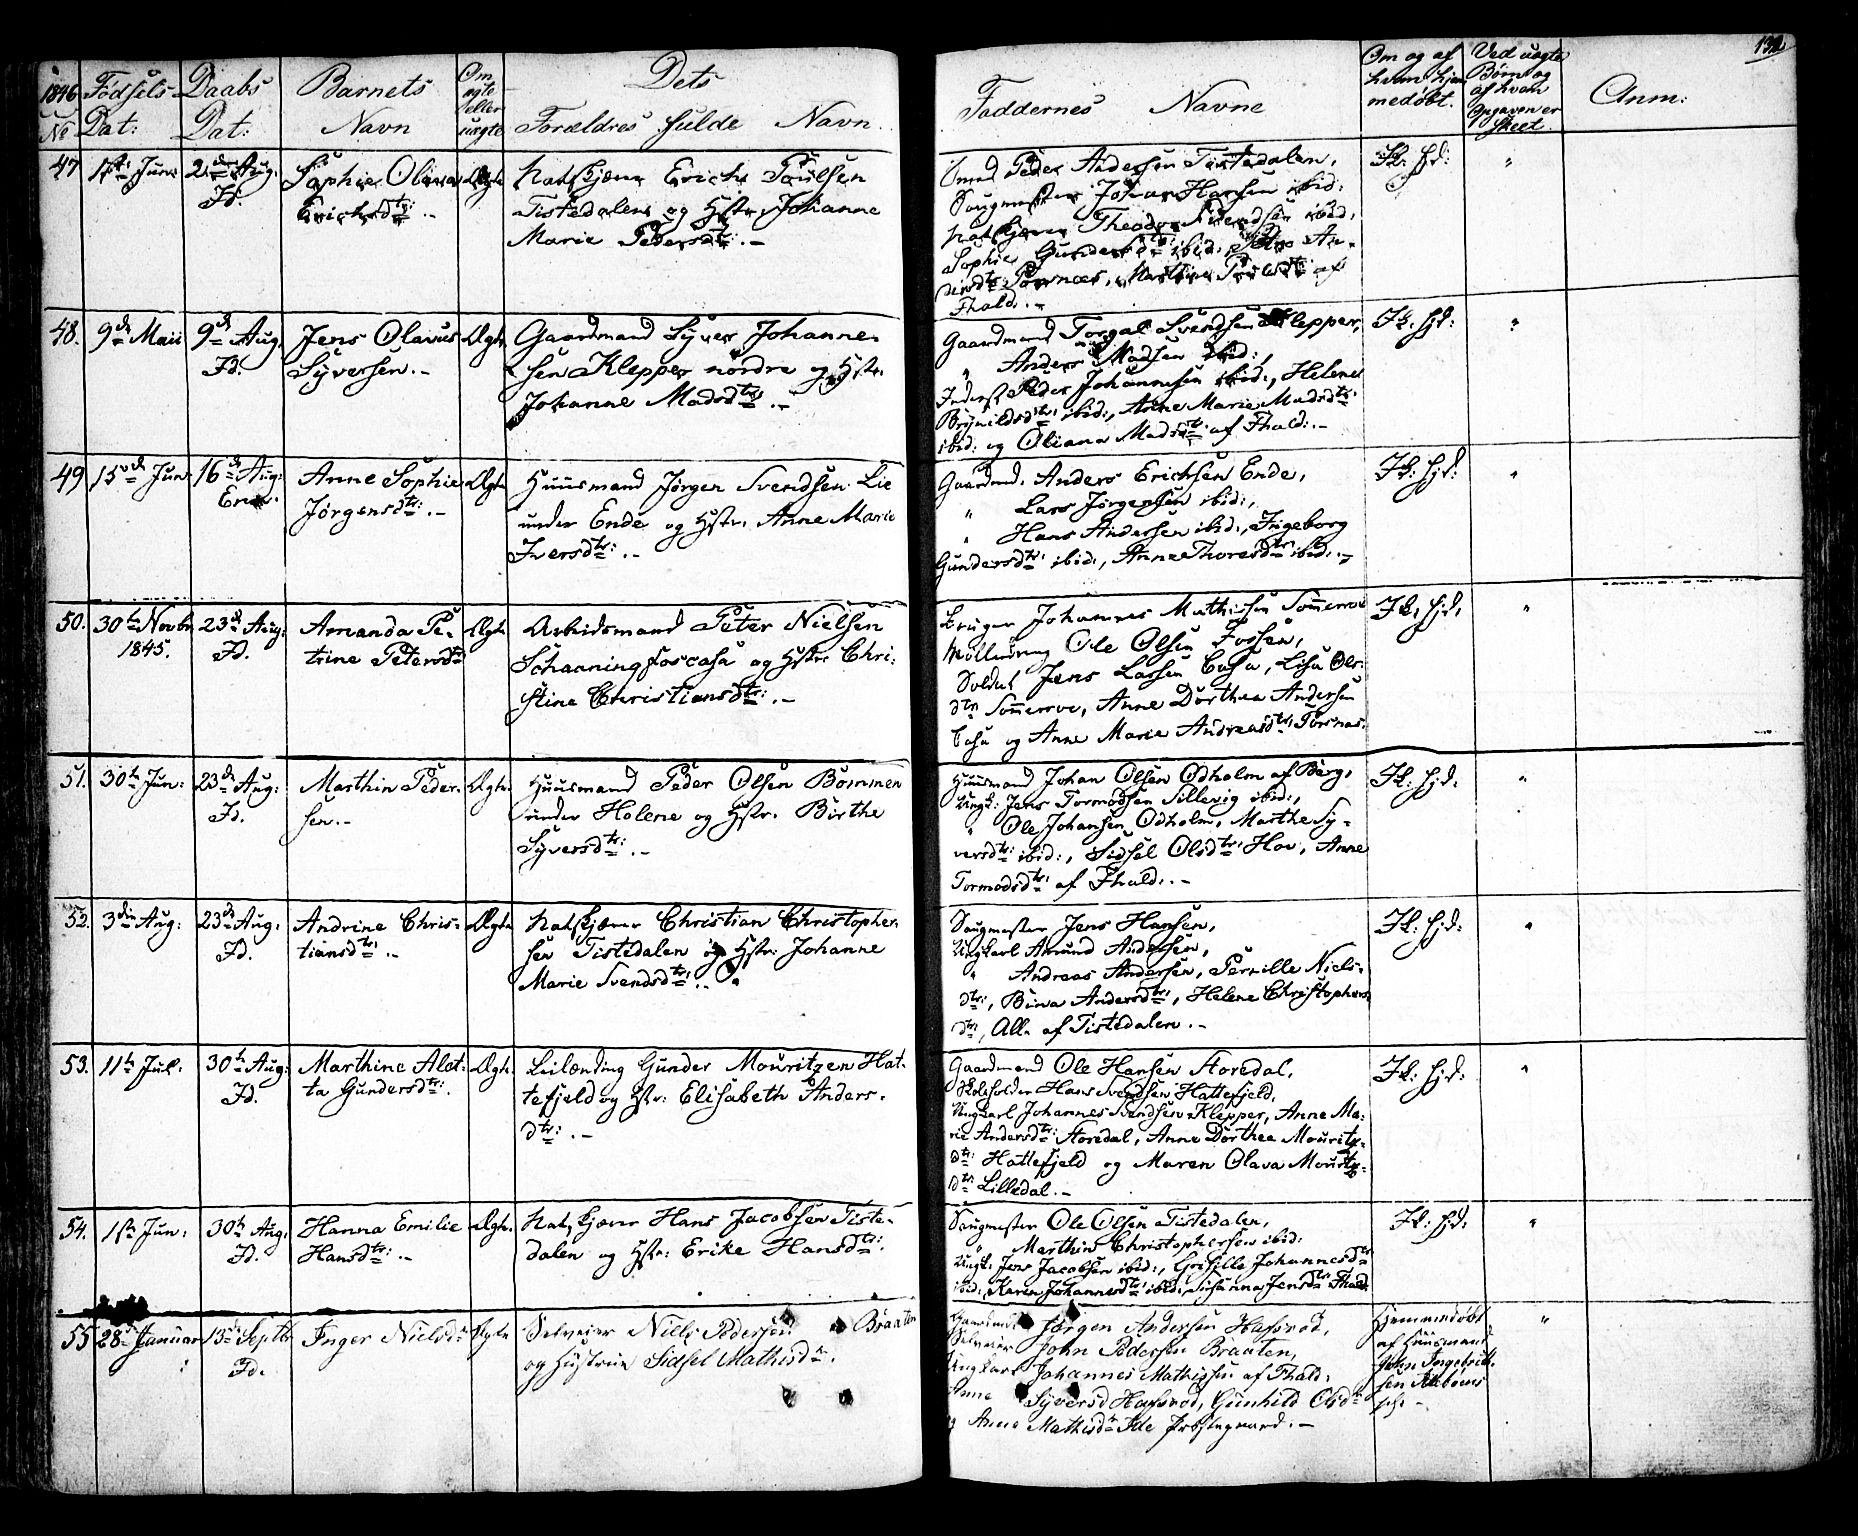 132
1846 Fødsels Daabs Barnets Om Dets
№ Dat: Dat: Navn ægte eller uægte Forældres fulde Navn.
Faddernes Navne
Om og af hvem hjemmedøbt.
Ved uægte Børn og af hvem Opgaven er skeet.
Anm:
47 1ste Jun: 2den Aug. Sophie Olivia Ægte Natskjærer Erich Poulsen
Id. Erichsdtr: .- Tistedalen og Hstr. Johanne
Marie Pedersdtr: .-
Smed Peder Andersen Tistedalen,
Saugmester Johan Hansen ibid:
Natskjærer Theodor Svendsen ibid,
Sophie Gundersdtr ibid: An-
dersdtr: Torsnæs, Marthine Poulsdtr: af
Fhald. .-
Ik: Hjd: "
48. 9de Maii 9de Aug. Jens Olavus Ægte Gaardmand Syver Johanne-
Id. Syversen .- sen Klepper nordre og Hstr:
Johanne Madsdtr: .-
Gaardmand Torgal Svendsen Klepper,
" Anders Madsen ibid:
Inderst Peder Johannesen ibid:, Helene
Brynildsdtr: ibid:, Anne Marie Madsdtr:
ibid: og Oliana Madsdtr: af Fhald: .-
Ik: Hjd: "
49 15de Jun: 16de Aug: Anne Sophie Ægte Huusmand Jørgen Svendsen Lie
Jørgensdtr: .- under Ende og Hstr. Anne Marie
Iversdtr: .-
Gaardmd. Anders Erichsen Ende,
" Lars Jørgensen ibid:,
" Hans Andersen ibid:, Ingeborg
Gundersdtr: ibid:, Anne Thoresdtr ibid: .-
Ik: Hjd: "
50. 30te Novbr 23de Aug: Amanda Pe- Ægte Arbeidsmand Peter Nielsen
1845. Id. trine Petersdtr Schaaningfoscasa og Hstr: Chri-
stine Christiansdtr: .-
Bruger Johannes Mathisen Sommeroe
Møllendreng Ole Olsen Fossen,
Soldat Jens Larsen Casa, Lisa Ols-
dtr Sommeroe, Anne Dorthea Andersen
Casa og Anne Marie Andreasdtr: Torsnæs.
Ik: Hjd: "
51. 30te Jun: 23de Aug: Marthin Peder- Ægte. Huusmand Peder Olsen Bommen
Id. sen .- under Holene og Hstr. Birthe
Syversdtr: .-
Huusmand Johan Olsen Odholm af Berg,
Ungk: Jens Tormodsen Sillevig ibid:,
" Ole Johansen Odholm, Marthe Sy-
versdtr: ibid:, Sidsel Olsdtr: Hov, Anne
Tormodsdtr: af Fhald: .-
Ik: Hjd: "
52. 3die Aug: 23de Aug: Andrine Chris- Ægte Natskjærer Christian Christopher-
Id. tiansdtr: .- sen Tistedalen og Hstr: Johanne
Marie Svendsdtr: .-
Saugmester Jens Hansen,
Ungkarl Amund Andersen,
" Andreas Andersen, Pernille Niels-
dtr:, Bina Andersdtr:, Helene Christophers-
dtr, Alle af Tistedalen .-
Ik: Hjd: "
53. 11te Jul. 30te Aug: Marthine Alet- Ægte. Leilænding Gunder Mouritzen Hat-
Id. ta Gundersdtr: . tefjeld og Hstr: Elisabeth Anders-
dtr: .-
Gaardmand Ole Hansen Storedal,
Skoleholder Hans Svendsen Hattefjeld,
Ungkarl Johannes Svendsen Klepper, Anne Ma-
rie Andersdtr: Storedal, Anne Dorthea Mouritz-
dtr: Hattefjeld og Maren Olava Mouritz-
dtr Lilledal .-
Ik: Hjd: "
54. 1ste Jun: 30te Aug: Hanna Emilie Ægte. Natskjærer Hans Jacobsen Tiste-
Id. Hansdtr: .- dalen og Hstr: Erike Hansdtr: .
Saugmester Ole Olsen Tistedalen,
" Marthin Christophersen ibid:
Ungk: Jens Jacobsen ibid:, Grisille Johannesdtr
ibid:, Karen Johannesdtr: ibid:, Susanna Jensdtr Fhald.
Ik: Hjd: "
55 28de Januar 13de Septbr Inger Nielsdtr Ægte Selveier Niels Pedersen Braaten
Id. og Hustrue Sidsel Mathisdtr.
Gaardmd Jørgen Andersen Hafsrød,
Selveier John Pedersen Braaten,
Ungkarl Johannes Mathissen af Fhald:
Anne Syversd Hafsrød, Gunhild Olsdtr
og Anne Mathisdtr Ide Præstegaard .-
Hjemmedøbt
af Huusmand
John Ingebrit-
sen
"